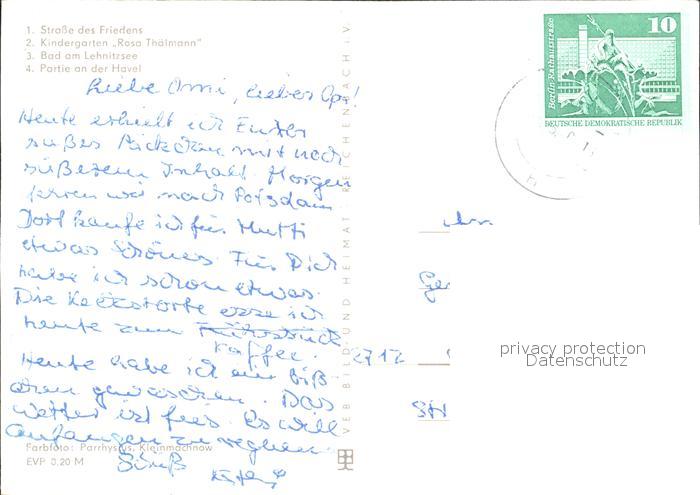 1. Straße des Friedens
2. Kindergarten „Rosa Thälmann"
3. Bad am Lehnitzsee
4. Partie an der Havel
Liebe Omi, lieber Opi!
Heute erhielt ich Euer
süßes Päckchen mit noch
süßerem Inhalt. Morgen
fahren wir nach Potsdam.
Dort kaufe ich für Mutti
etwas Schönes. Für Dich
habe ich schon etwas.
Die Kekstorte esse ich
heute zum Frühstück
Kaffee.
Heute habe ich ein biß-
chen gewaschen. Das
Wetter ist fies. Es will
anfangen zu regnen.
Gruß
VEB BILD UND HEIMAT REICHENBACH i. V.
Farbfoto: Parrhysius, Kleinmachnow
EVP 0.20 M
10
Berlin, Rathausstraße
DEUTSCHE DEMOKRATISCHE REPUBLIK
An
2712
privacy protection
Datenschutz